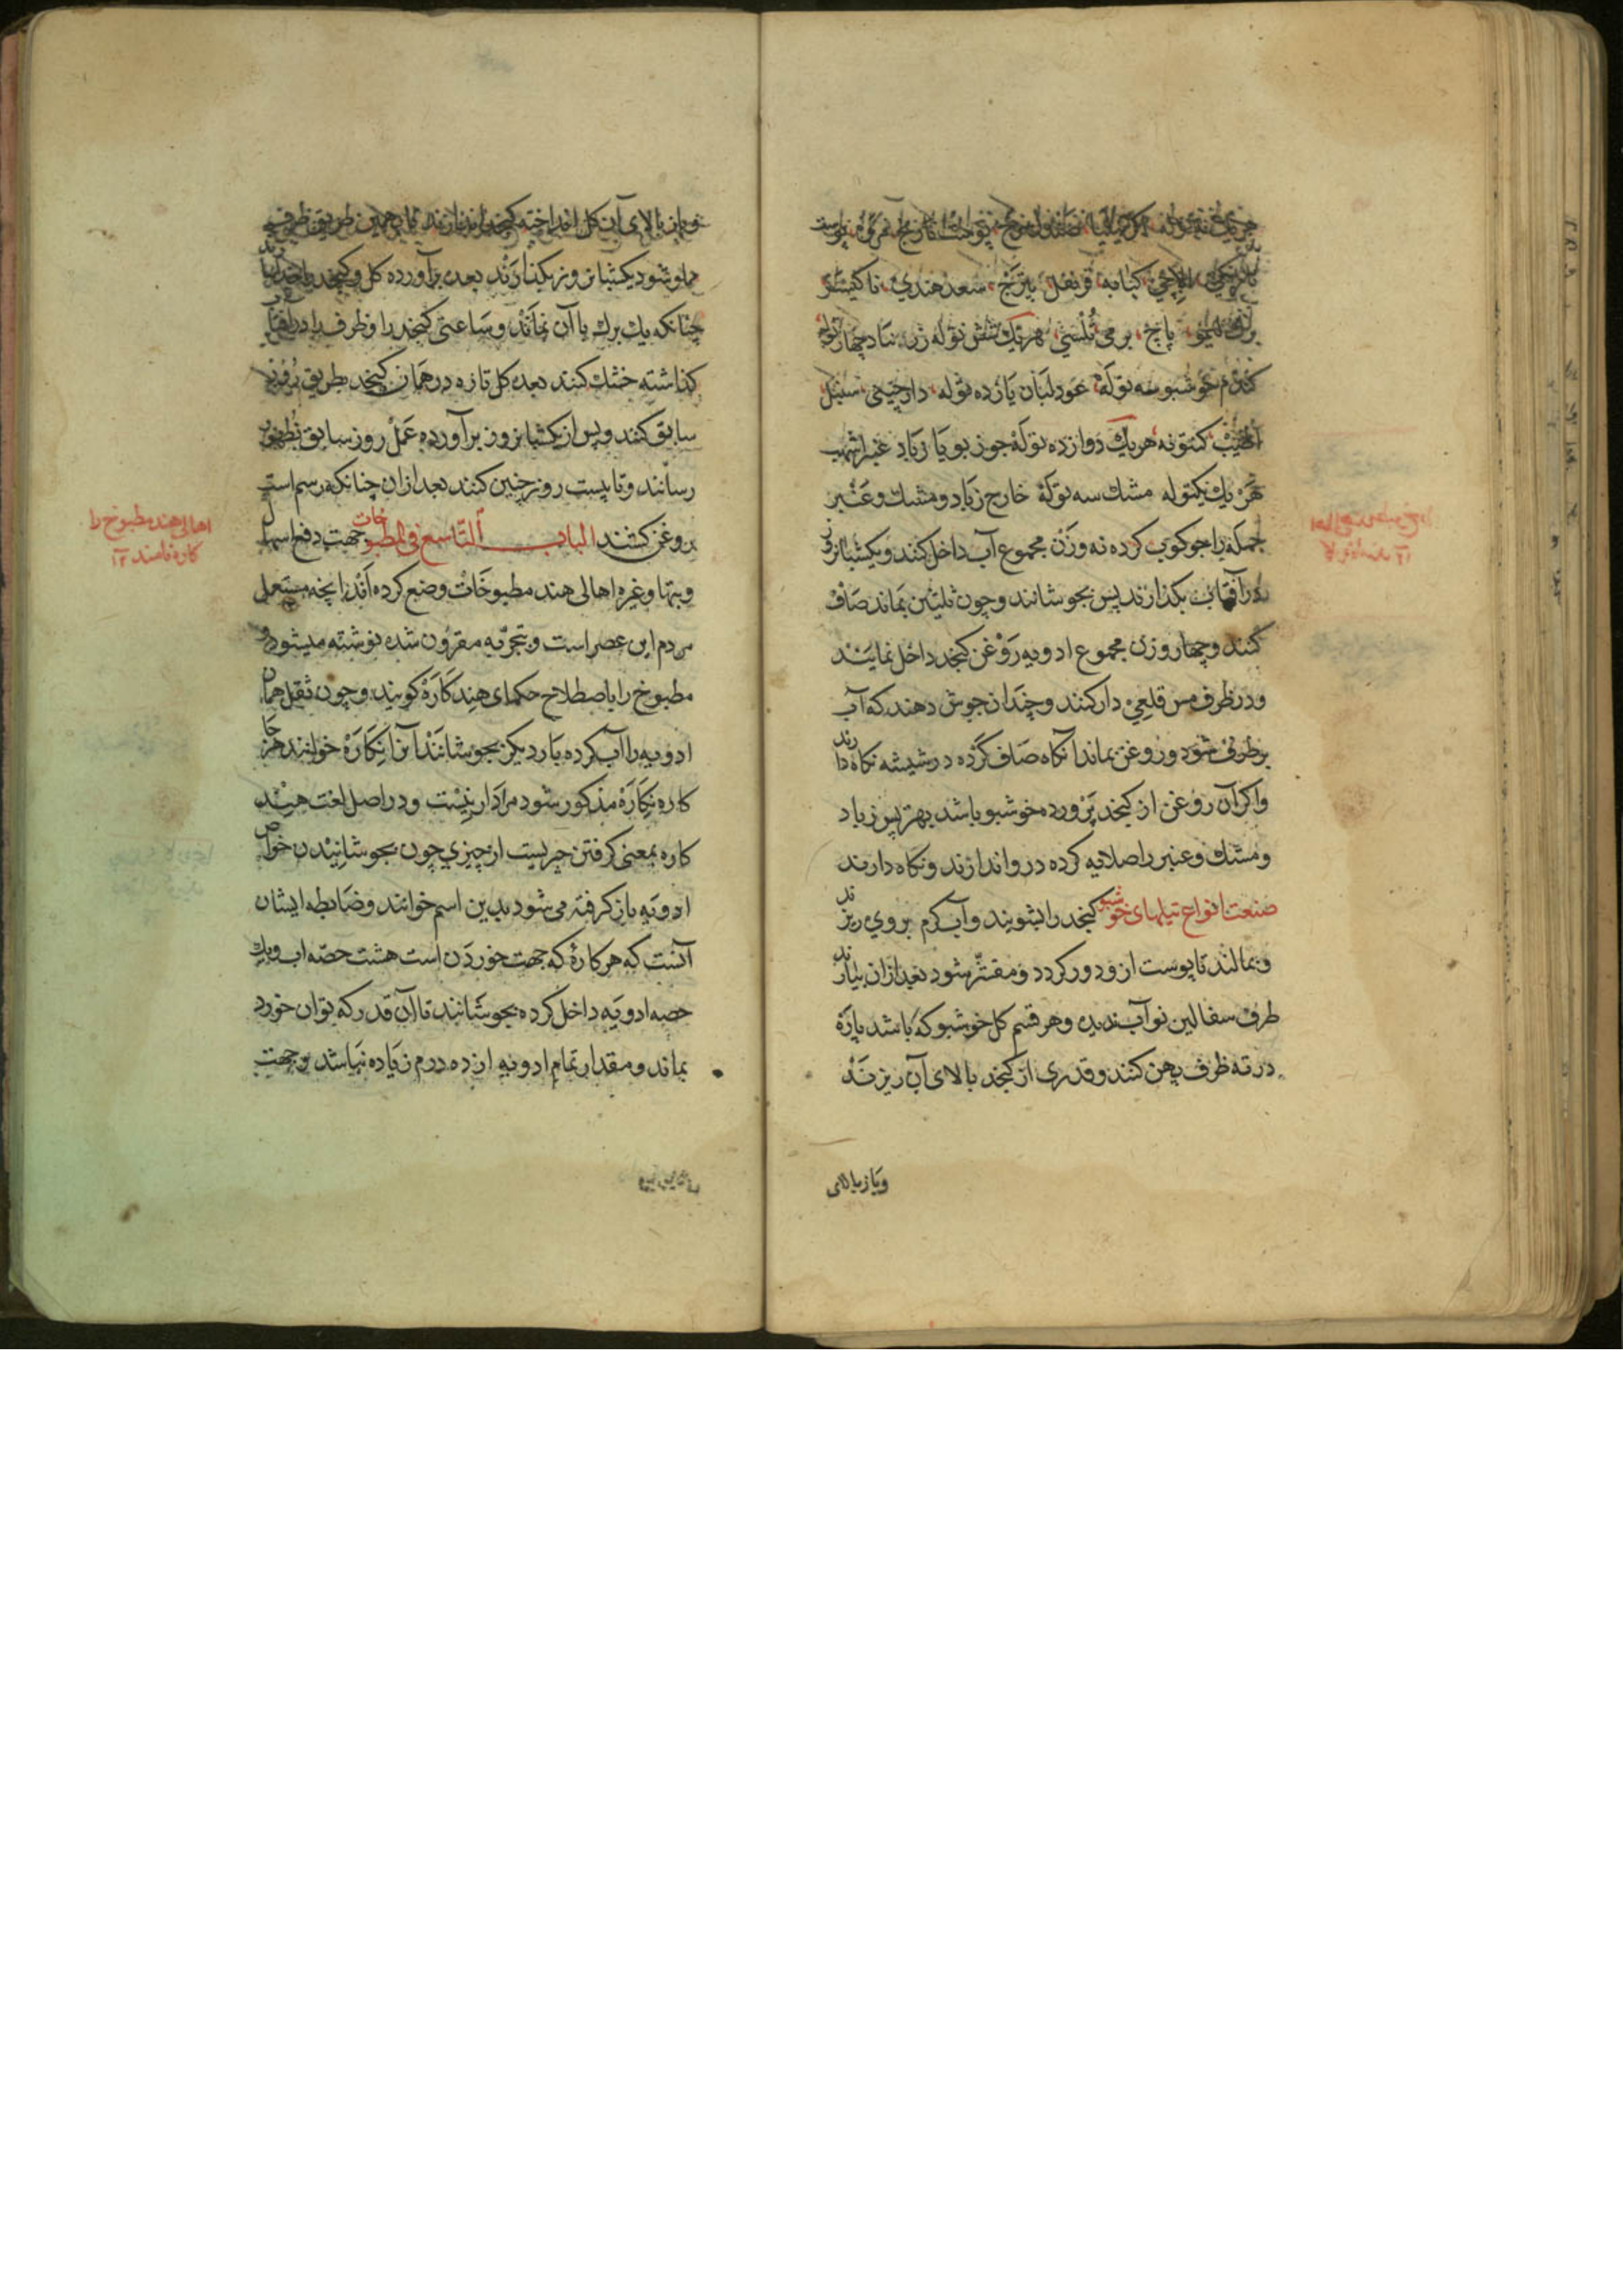 الاچي كبابه قرنفل برنج سعد هندي ناكيسر
پاچ برمي تلسي هريك شش توله زرنباد چهار توله
كندم خوشبو سه توله عود لبان يازده توله دارچيني سنبل
الطيب كتونه هريك دوازده توله جوزبويا زباد عنبر اشهب
هريك يكتوله مشك سه توله خارج زباد و مشك و عنبر
جمله را جوكوب كرده نه وزن مجموع آب داخل كنند و يكشبانروز
در آفتاب بكذارند پس بجوشانند و چون ثلثين بماند صاف
كنند و چهار وزن مجموع ادويه روغن كنجد داخل نمايند
و در ظرف مس قلعي دار كنند و چندان جوش دهند كه آب
برطرف شود و روغن بماند آنكاه صاف كرده در شيشه نكاه دارند
واكر آن روغن از كنجد پرورده خوشبو باشد بهتر پس زباد
و مشك و عنبر را صلايه كرده در و اندازند و نكاه دارند
صنعت انواع تيلهاى خوشبو كنجد را بشويند و آب كرم بروي ريزند
و بمالند تا پوست ازو دور كردد و مقشر شود بعد ازان بيارند
ظرف سفالين نو آب نديده و هر قسم كل خوشبو كه باشد پارۀ
در ته ظرف پهن كنند و قدرى از كنجد بالاى آن ريزند
و باز بالاى
و باز بالاى آن كل انداخته كنجد اندازند تا بهمين طريق ظرف
مملو شود يكشبانروز بكذارند بعده برآورده كل و كنجد را جدا سازند
چنانكه يك برك با آن نماند و ساعتى كنجد را و ظرف را در آفتاب
كذاشته خشك كنند بعده كل تازه در همان كنجد بطريق روز
سابق كنند و پس از يكشبانروز برآورده عمل روز سابق بظهور
رسانند و تا بيست روز چنين كنند بعد ازان چنانكه رسم است
روغن كشند الباب التاسع في المطبوخات جهت دفع اسهال
و تبها و غيره اهالى هند مطبوخات وضع كرده اند انچه مستعمل
مردم اين عصر است و بتجربه مقرون شده نوشته ميشود و
مطبوخ را باصطلاح حكماى هند كاره كويند و چون ثفل همان
ادويه را آب كرده بار ديكر بجوشانند آنرا نكاره خوانند هرجا
كاره نكاره مذكور شود مراد ازينست و در اصل لغت هند
كاره بمعنى كرفتن چيزيست از چيزي چون بجوشانيدن خواص
ادويه باز كرفته مى شود بدين اسم خوانند و ضابطه ايشان
آنست كه هر كارۀ كه جهت خوردن است هشت حصه اب و يك
حصه ادويه داخل كرده بجوشانند تا آن قدر كه توان خورد
بماند و مقدار تمام ادويه از ده درم زياده نباشد و جهت
اهالى هند مطبوخ را
كاره نامند ١٢